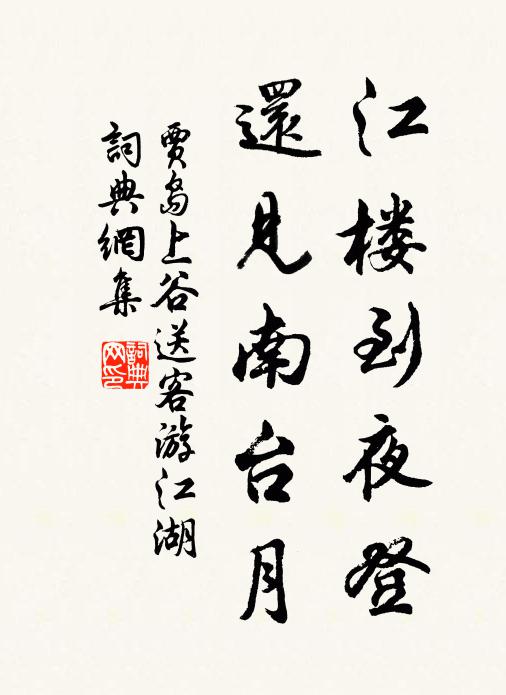 江楼到夜登
還見南台月
賈島上谷送客游江湖
詞典網集
詞典网印